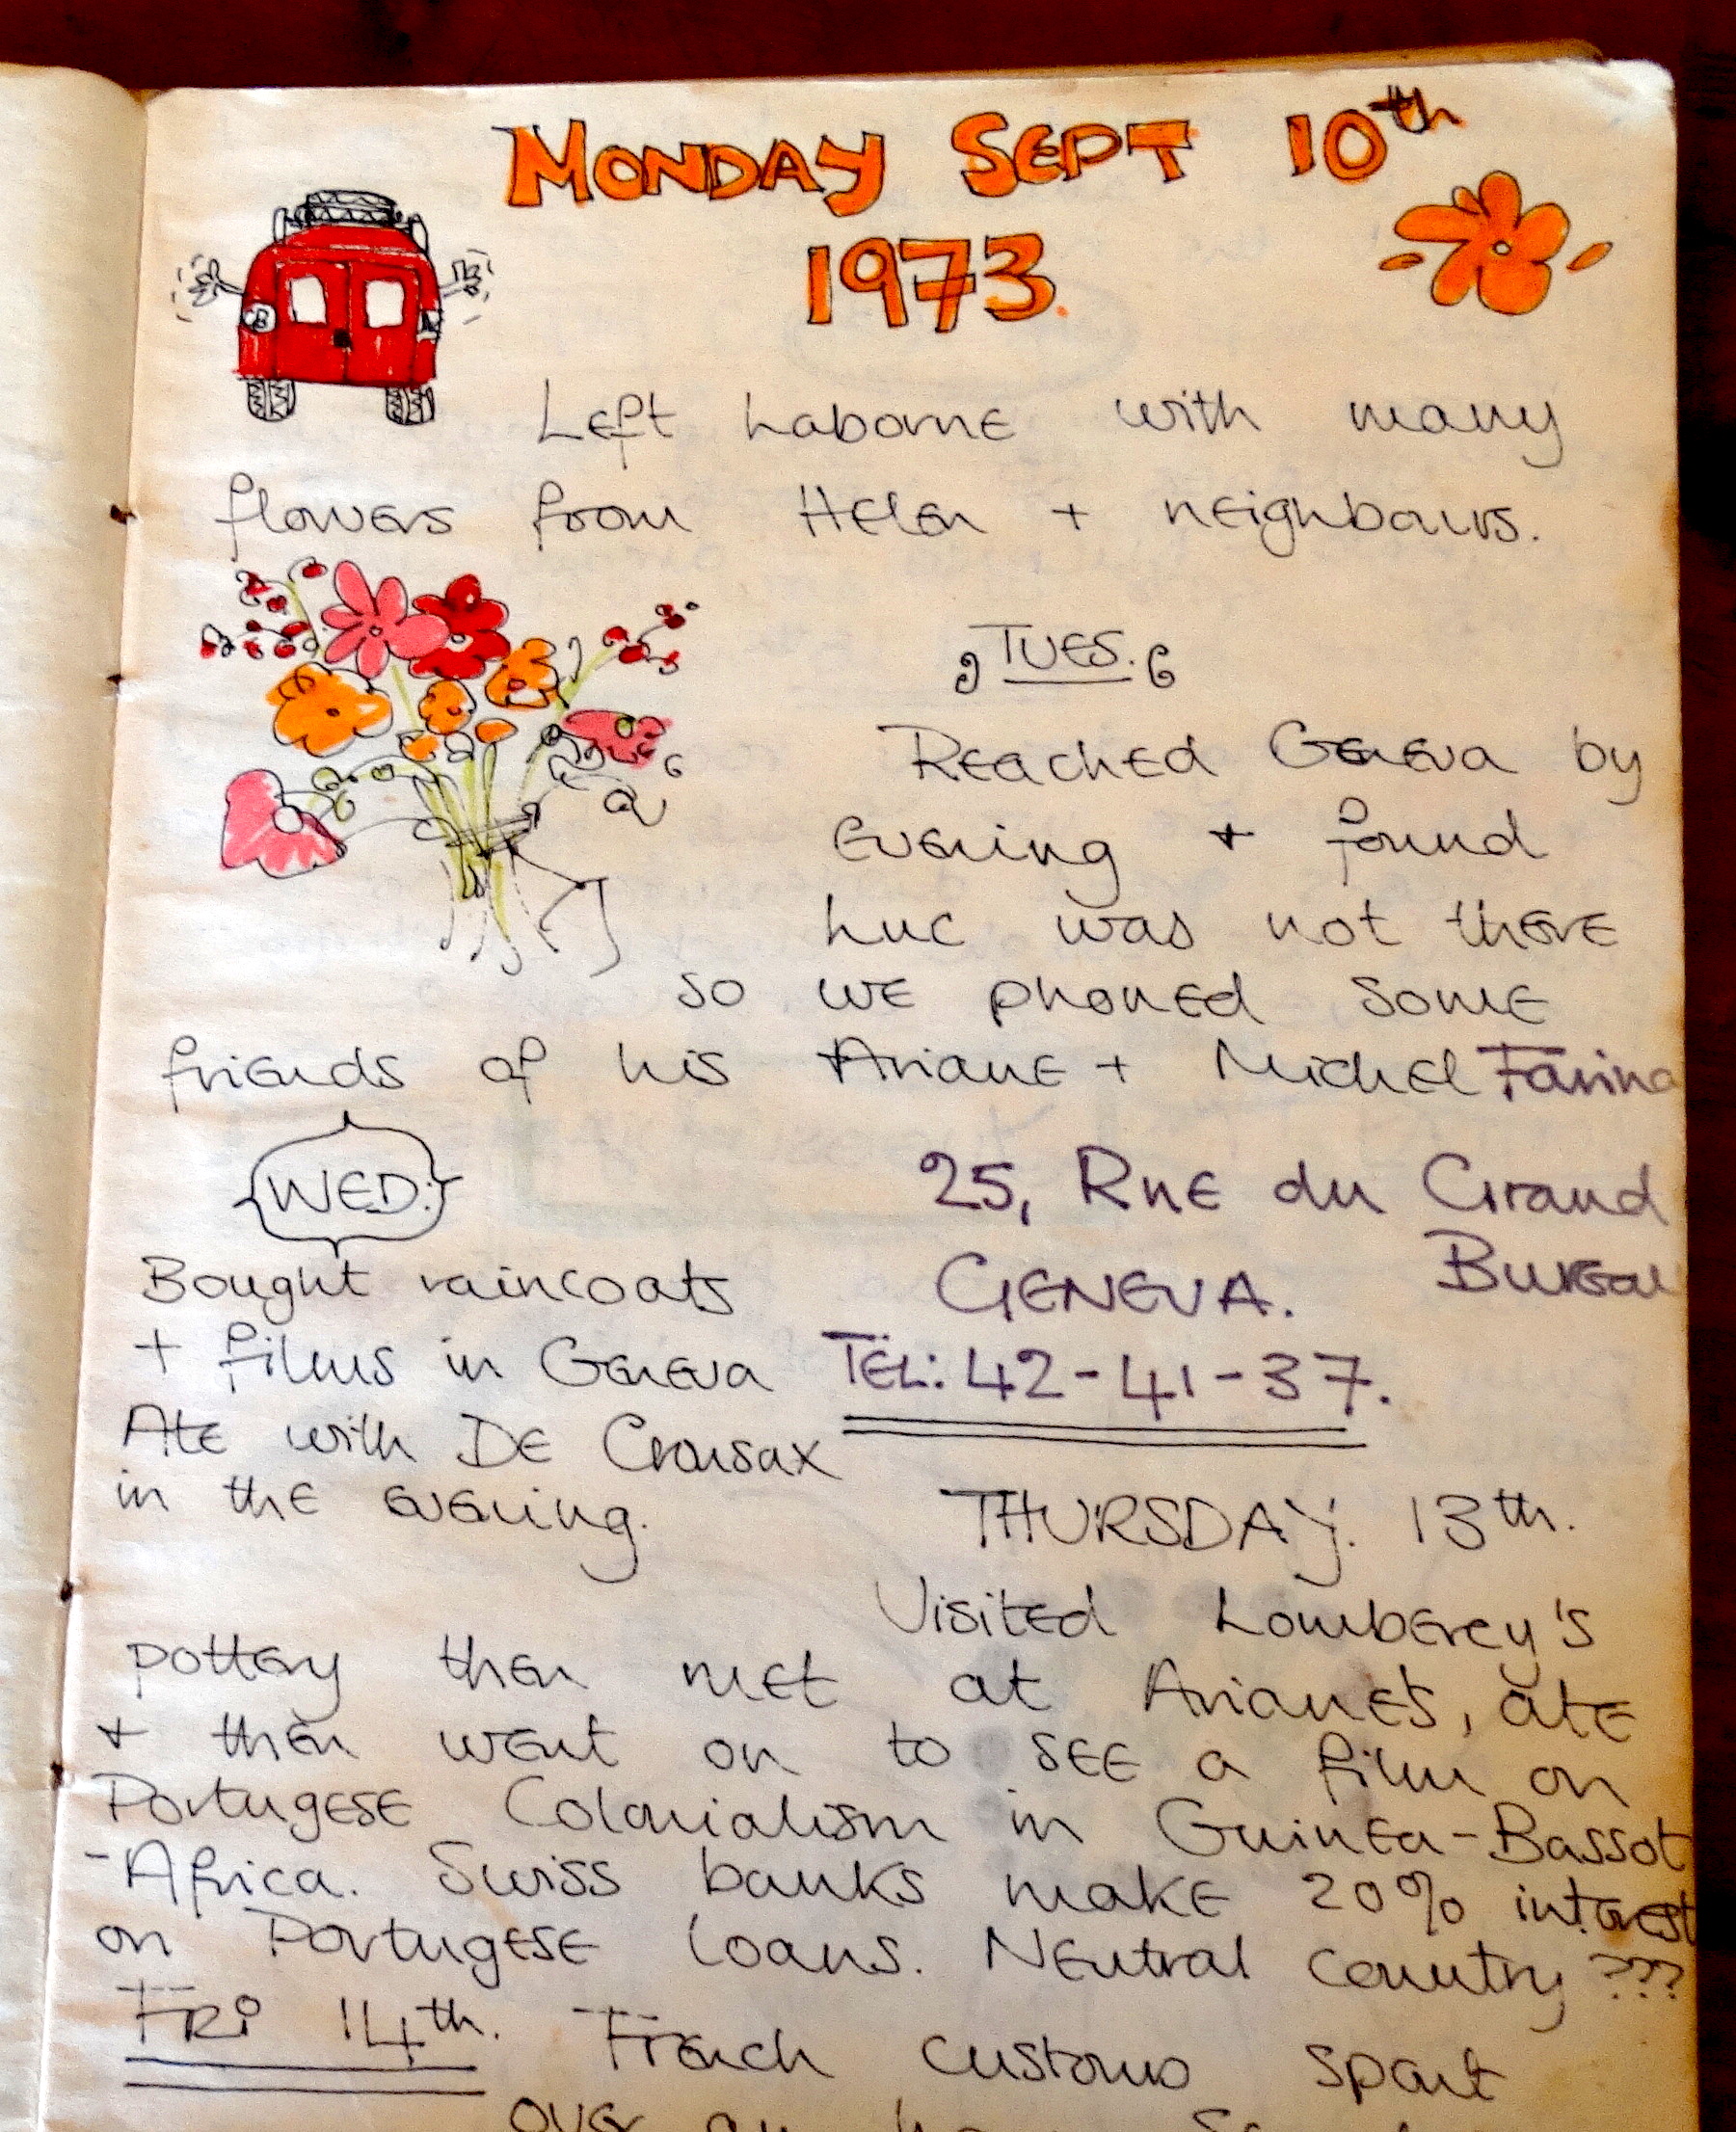 MONDAY SEPT 10th
1973.
GB
Left Laborne with many
flowers from Helen + neighbours.
TUES.
Reached Geneva by
evening + found
Luc was not there
so we phoned some
friends of his Ariane + Michel Farina
25, Rue du Grand
Bureau
GENEVA.
TEL: 42-41-37.
WED:
Bought raincoats
+ films in Geneva
Ate with De Crousax
in the evening.
THURSDAY. 13th.
Visited Lomberey's
pottery then met at Ariane's, ate
+ then went on to see a film on
Portugese Colonialism in Guinea-Bassot
-Africa. Swiss banks make 20% interest
on Portugese loans. Neutral country ???
FRI 14th. French customs spent
over an